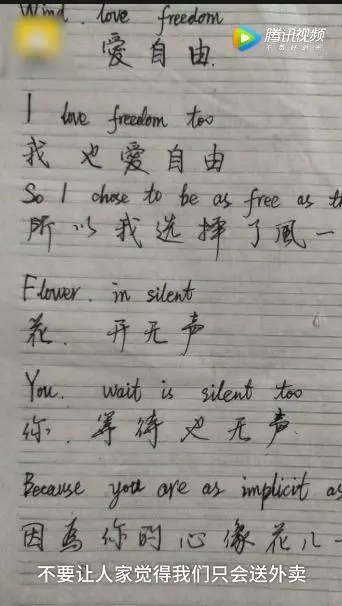 Wind. love freedom
腾讯视频
不负好时光
愛自由.
I love freedom too
我也愛自由
So I chose to be as free as
所以我选择了風一
Flower. in silent
花. 开无声
You. wait is silent too
你. 等待也无声.
Because you are as implicit as
因為你的心像花儿一
不要让人家觉得我们只会送外卖